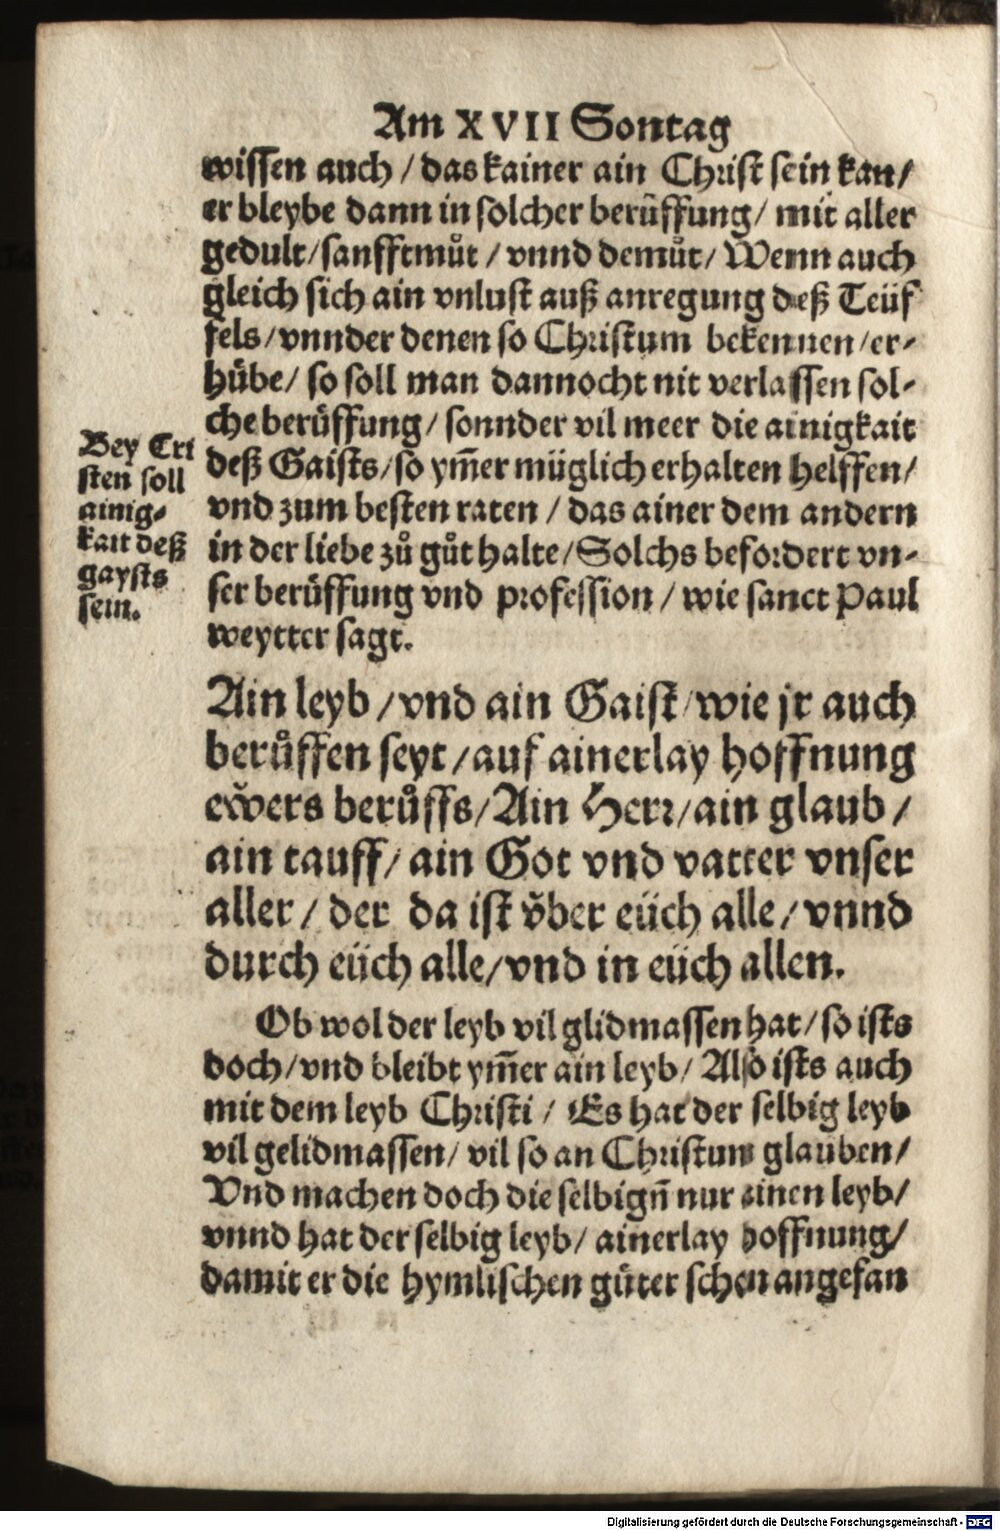 Am XVII Sontag
wissen auch / das kainer ain Christ sein kan /
er bleybe dann in solcher berůffung / mit aller
gedult / sanfftmůt / vnnd demůt / Wenn auch
gleich sich ain vnlust auß anregung deß Teüf
fels / vnnder denen so Christum bekennen / er-
hůbe / so soll man dannocht nit verlassen sol-
che berůffung / sonnder vil meer die ainigkait
deß Gaists / so ym̃er müglich erhalten helffen /
vnd zum besten raten / das ainer dem andern
in der liebe zů gůt halte / Solchs befordert vn-
ser berůffung vnd profession / wie sanct Paul
weytter sagt.
Bey Cri
sten soll
ainig-
kait deß
gaysts
sein.
Ain leyb / vnd ain Gaist / wie jr auch
berůffen seyt / auf ainerlay hoffnung
ewers berůffs / Ain Herr / ain glaub /
ain tauff / ain Got vnd vatter vnser
aller / der da ist vͤber eüch alle / vnnd
durch eüch alle / vnd in eüch allen.
Ob wol der leyb vil glidmassen hat / so ists
doch / vnd bleibt ym̃er ain leyb / Also ists auch
mit dem leyb Christi / Es hat der selbig leyb
vil gelidmassen / vil so an Christum glauben /
Vnd machen doch die selbign̄ nur ainen leyb /
vnnd hat der selbig leyb / ainerlay hoffnung /
damit er die hymlischen gůter schon angefan
Digitalisierung gefördert durch die Deutsche Forschungsgemeinschaft - DFG